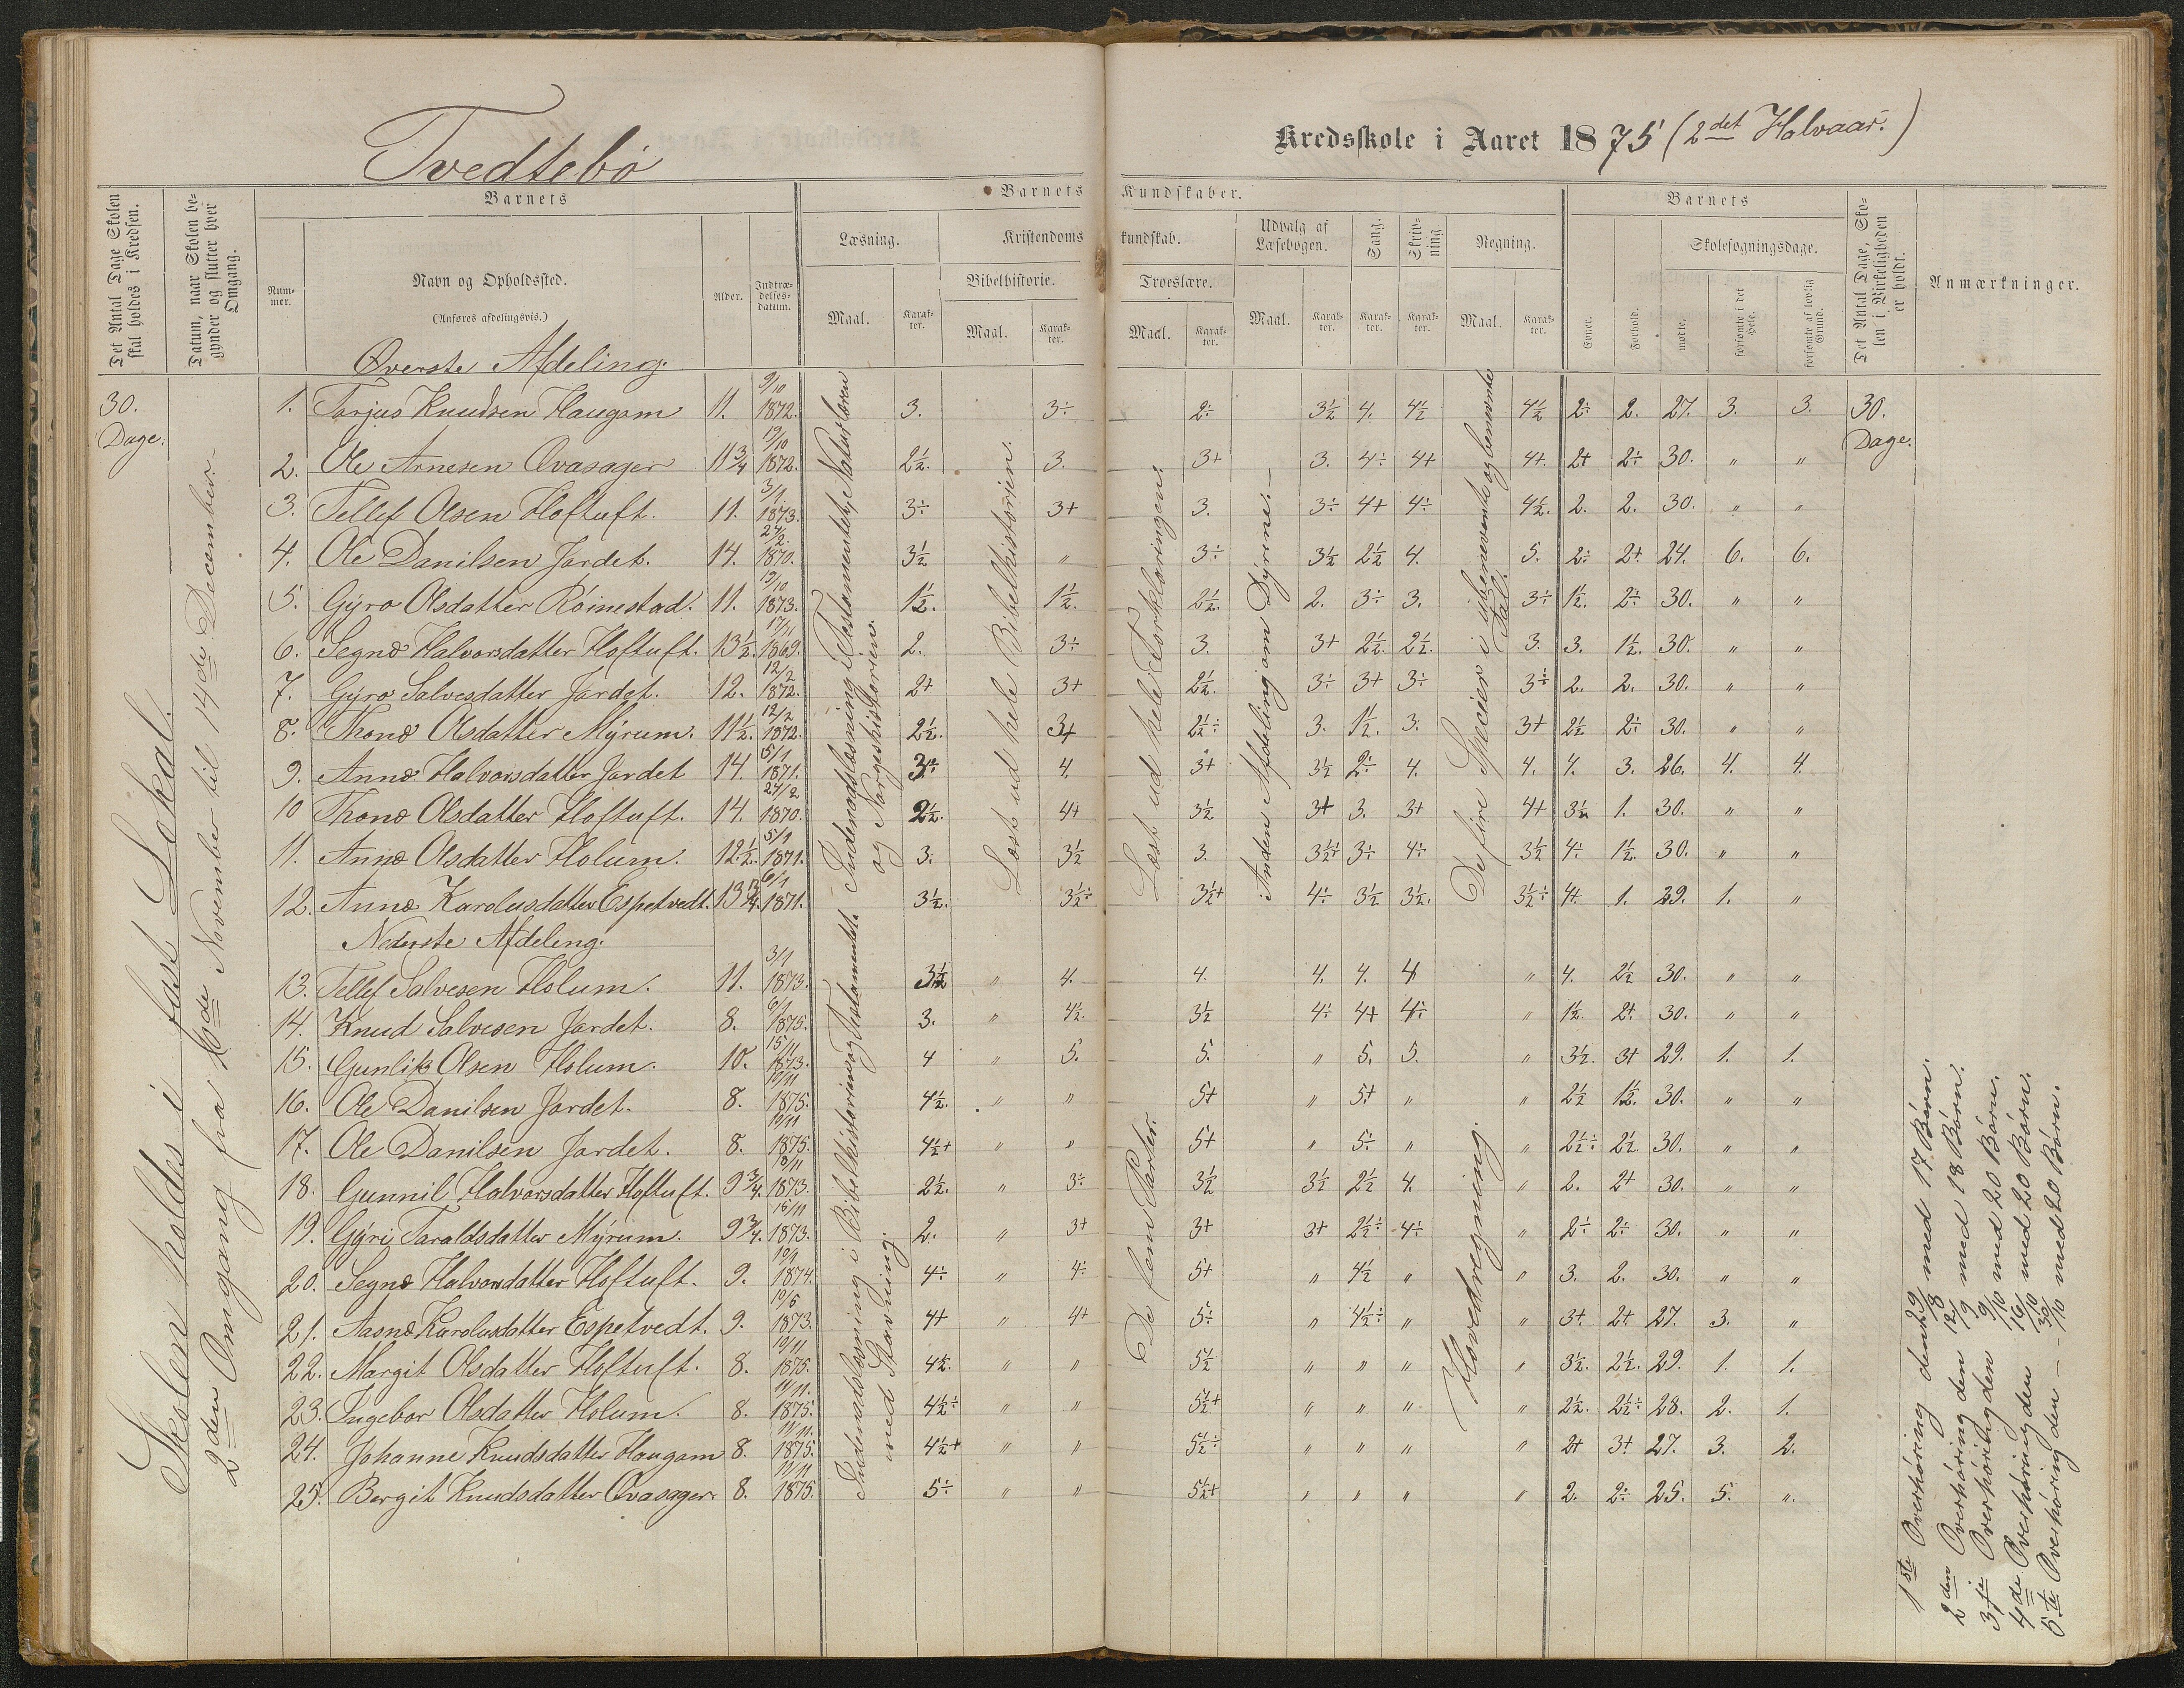 Tvedtebö
Kredsskole i Aaret 1875 (2det Halvaar.)
Det Antal Dage Skolen skal holdes i Kredsen.
Datum, naar Skolen begynder og slutter hver Omgang.
Barnets
Nummer.
Navn og Opholdssted.
(Anføres afdelingsvis.)
Alder.
Indtrædelsesdatum.
Barnets Kundskaber.
Læsning.
Maal.
Karakter.
Kristendomskundskab.
Bibelhistorie.
Maal.
Karakter.
Troeslære.
Maal.
Karakter.
Udvalg af Læsebogen.
Maal.
Karakter.
Sang.
Karakter.
Skrivning
Karakter.
Regning.
Maal.
Karakter.
Barnets
Evner.
Forhold.
Skolesøgningsdage.
mødte.
forsømte i det Hele.
forsømte af lovlig Grund.
Det Antal Dage, Skolen i Virkeligheden er holdt.
Anmærkninger.
30. Dage.
Skolen holdes i fast Lokal.
2den Omgang fra November til 14de December.
Øverste Afdeling.
1. Tarjus Knudsen Haugom 11. 9/10 1872. 3. 3÷ 2÷ 3½ 4. 4½ 4½ 2÷ 2. 27. 3. 3. 30. Dage.
2. Ole Arnesen Ovasager 11¾ 19/10 1872. 2½. 3. 3+ 3. 4÷ 4+ 4+. 2+ 2÷ 30. " "
3. Tellef Olsen Hoftuft. 11. 3/1 1873. 3÷ 3+ 3. 3÷ 4+ 4÷ 4½. 2. 2. 30. " "
4. Ole Danilsen Jordet. 14. 24/2. 1870. 3½ " 3÷ 3½ 2½ 4. 5. 2÷ 2+ 24. 6. 6.
5. Gÿro Olsdatter Röinestad. 11. 19/10 1873. 1½. 1½. 2½. 2. 3÷ 3. 3÷ 1½. 2÷ 30. " "
6. Segne Halvorsdatter Hoftuft. 13½. 17/11 1869. 2. 3÷ 3. 3+ 2½. 2½. 3. 3. 1½. 30. " "
7. Gyro Salvesdatter Jordet. 12. 12/2 1872. 2+ 3+ 2½. 3÷ 3+ 3÷ 3÷ 2. 2. 30. " "
8. Thone Olsdatter Mÿrum. 11½. 12/2 1872. 2½. 3+ 2½÷ 3. 1½. 3. 3+ 2½ 2÷ 30. " "
9. Anne Halvorsdatter Jordet 14. 5/1 1871. 3÷ 4. 3+ 3½ 2÷ 4. 4. 4. 3. 26. 4. 4.
10 Thone Olsdatter Hoftuft. 14. 24/2 1870. 2½. 4+ 3½ 3+ 3. 3+ 4+ 3½ 1. 30. " "
11. Anne Olsdatter Holum. 12½. 5/1 1871. 3. 3½ 3. 3½÷ 3÷ 4÷ 3½ 4÷ 1½. 30. " "
12. Anne Karolusdatter Espetvedt. 13¾. 6/1 1871. 3½. 3½÷ 3½+ 4÷ 3½ 3½. 3½÷ 4+. 1. 29. 1. "
Indenadslæsning i Testamentet, Naturlæren og Norgeshistorien.
Læst ud hele Bibelhistorien.
Læst ud hele Forklaringen.
Anden Afdeling om Dÿrene.
De fire Specier i ubenævnte og benævnte Tal.
Nederste Afdeling.
13. Tellef Salvesen Holum. 11. 3/1 1873. 3½ " 4. 4. 4. 4. 4 " 4. 2½ 30. " "
14. Knud Salvesen Jordet. 8. 6/1 1875. 3. " 4½. 3½ 4÷ 4+ 4÷ " 1½. 2+. 30. " "
15. Gunlik Olsen Holum. 10. 15/11 1873. 4 " 5. 5. " 5. 5. " 3½. 3+ 29. 1. 1.
16. Ole Danilsen Jordet. 8. 10/11 1875. 4½. " " 5+ " 5+ " " 2½ 1½. 30. " "
17. Ole Danilsen Jordet. 8. 10/11 1875. 4½+ " " 5+ " 5÷ " " 2½÷ 2½ 30. " "
18. Gunnil Halvorsdatter Hoftuft. 9¾. 18/11 1873. 2½. " 3÷ 3½ 3½ 2½ 4. " 2. 2+ 30. " "
19. Gÿri Taraldsdatter Mÿrum. 9¾. 15/11 1873. 2. " 3+ 3+ 3+ 2½÷ 4÷ " 2÷ 2÷ 30. " "
20. Segne Halvorsdatter Hoftuft. 9. 10/1 1874. 4÷ " 4÷ 5+ " 4½ " " 3. 2. 30. " "
21. Aasne Karolusdatter Espetvedt. 9. 10/5 1873. 4+ " 4+ 5÷ " 4½÷ " " 3+. 2+. 27. 3. "
22. Margit Olsdatter Hoftuft. 8. 10/11 1875. 4½. " " 5½ " " " " 3½. 2½. 29. 1. 1.
23. Ingebor Olsdatter Holum. 8. 11/11. 1875. 4½÷ " " 5½+ " " " " 2½. 2½÷ 28. 2. 1.
24. Johanne Knudsdatter Haugom 8. 11/11. 1875. 4½+ " " 5½÷ " " " " 2+ 3+. 27. 3. 2.
25. Bergit Knudsdatter Ovasager 8. 11/11 1875. 5÷ " " 5½+ " " " " 2. 2÷ 25. 5. "
Indenadslæsning i Bibelhistorien og Testamentet med Stavning.
De fem Parter.
Hovedregning.
1ste Overhøring den 29/8 med 17 Børn.
2den Overhøring den 12/9 med 18 Børn.
3die Overhøring den 9/10 med 20 Børn.
4de Overhøring den 16/10 med 20 Børn.
5te Overhøring den 30/10 med 20 Børn.